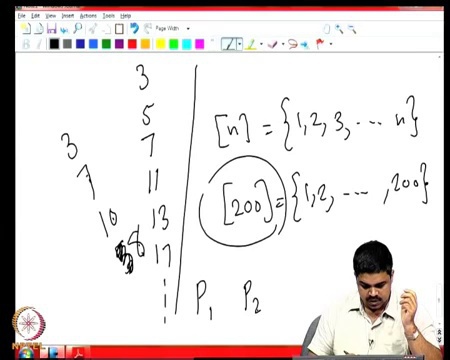 File Edit View Insert Actions Tools Help
Page Width
3
5
7
11
13
17
3
7
10
8
[n] = {1, 2, 3, ... n}
[200] = {1, 2, ... , 200}
P1 P2